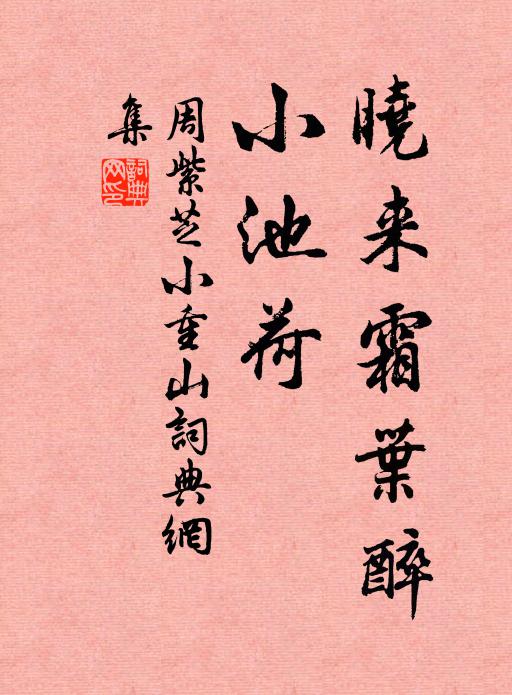 曉来霜葉醉
小池荷
周紫芝小重山詞典網
集
詞典網印